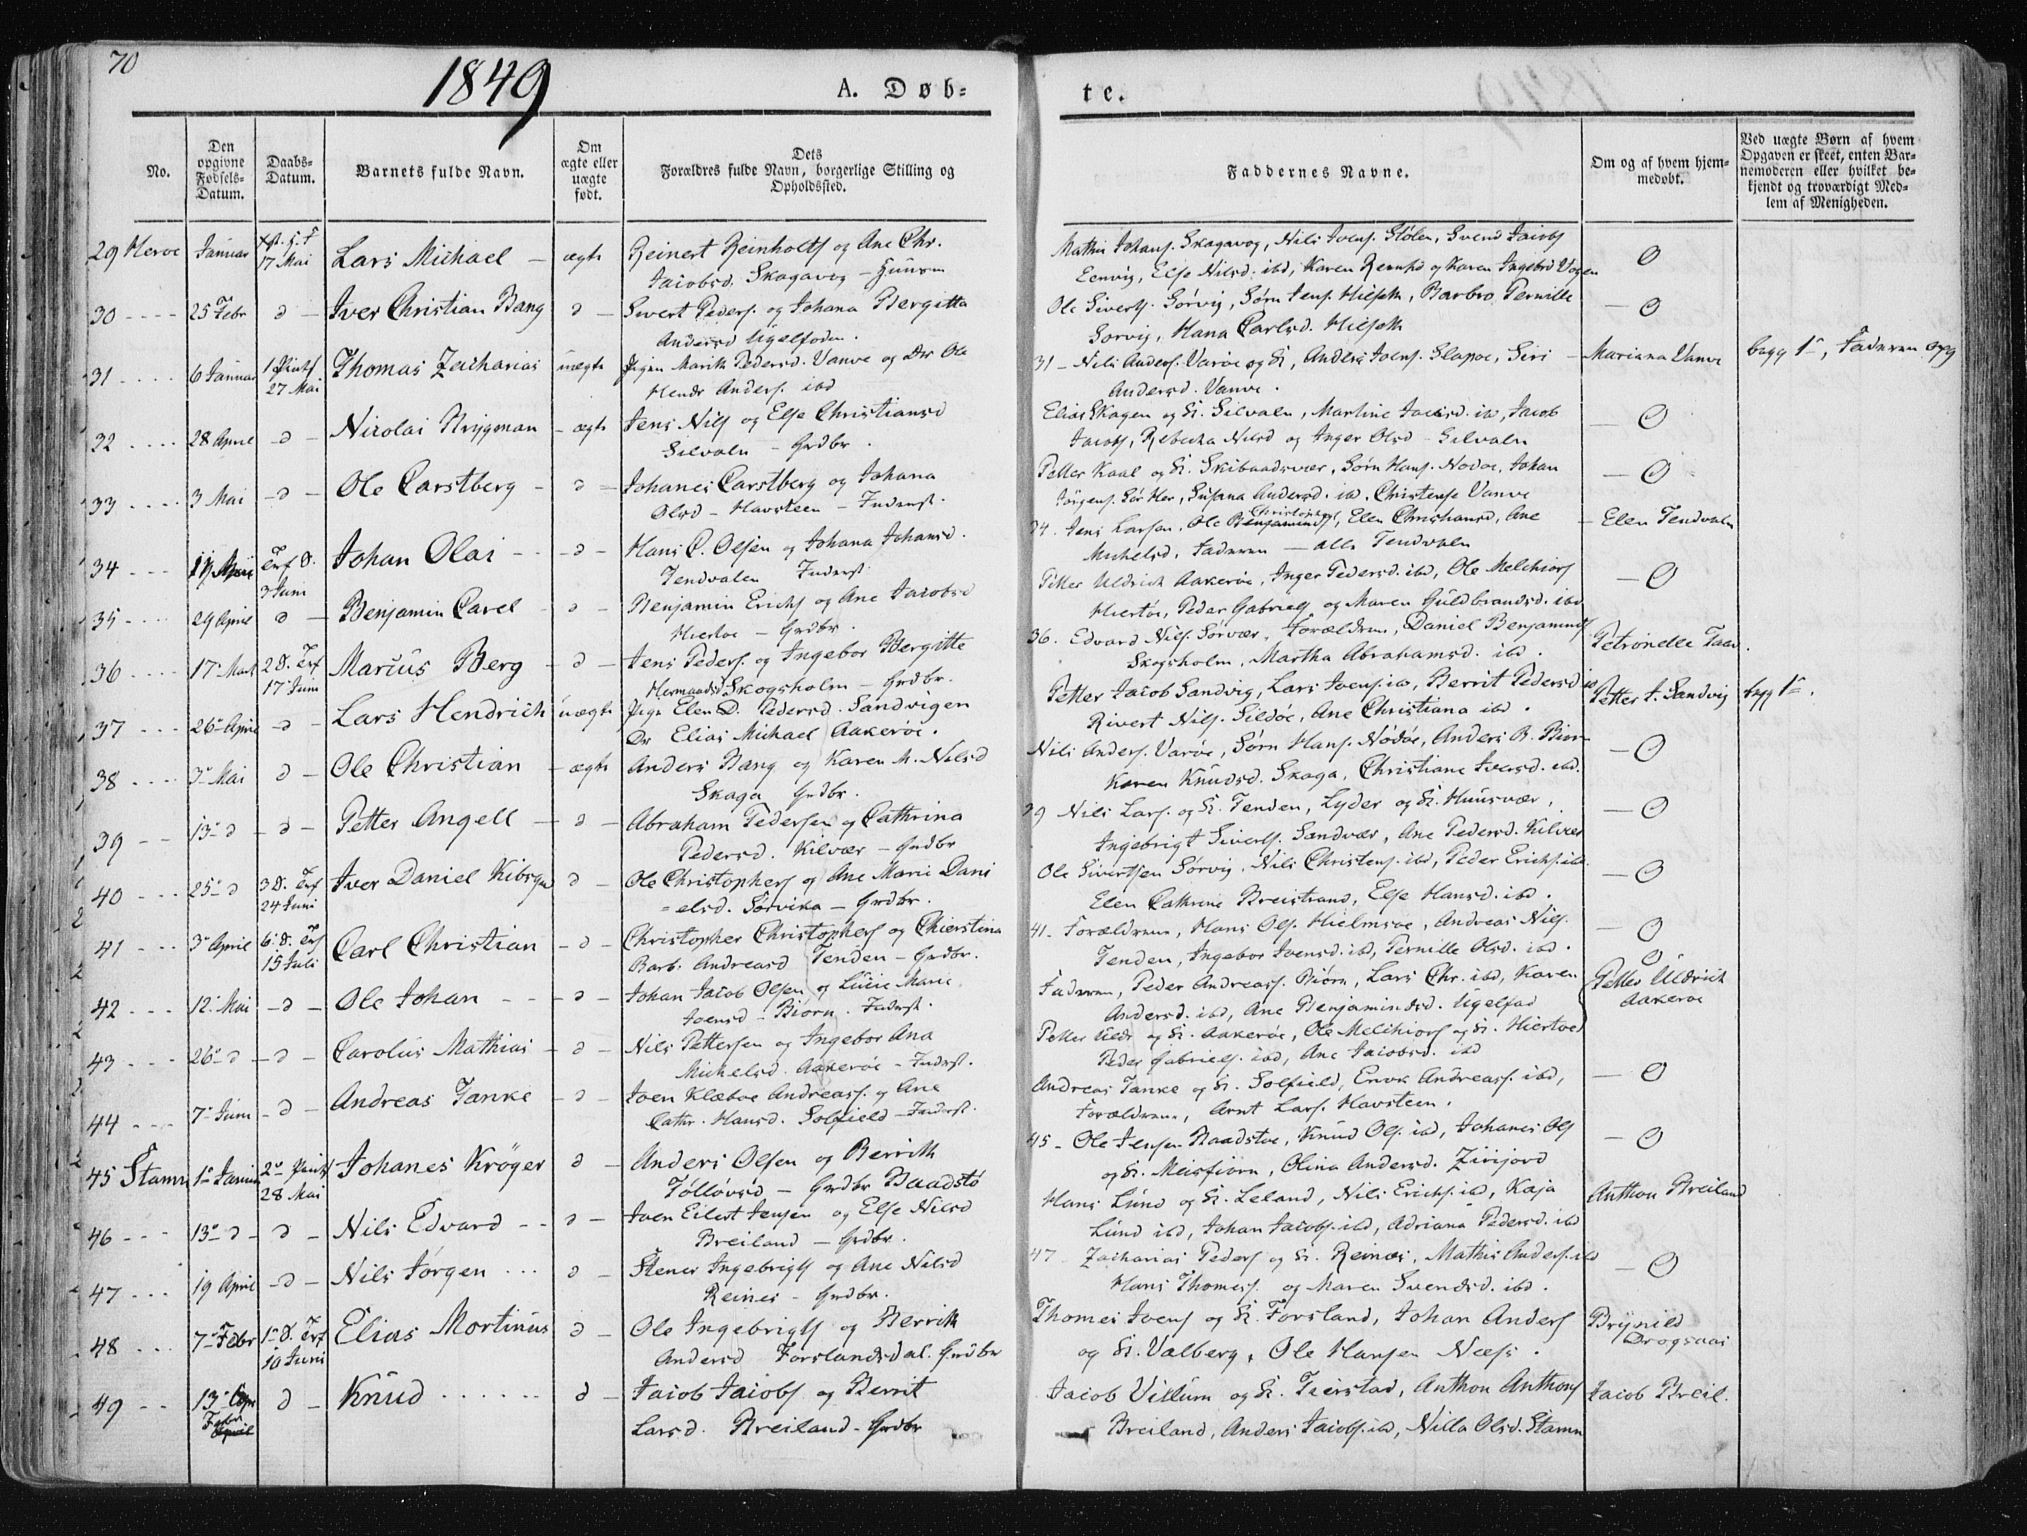 70
1849
A. Døb-
te.
No.
Den opgivne Fødsels-Datum.
Daabs-Datum.
Barnets fulde Navn.
Om ægte eller uægte født.
Dets Forældres fulde Navn, borgerlige Stilling og Opholdssted.
Faddernes Navne.
Om og af hvem hjemmedøbt.
Ved uægte Børn af hvem Opgaven er skeet, enten Barnemoderen eller hvilket bekjendt og troværdigt Medlem af Menigheden.
29 Herøe Januar 17 Mai Lars Michael – ægte Reinert Reinholts og Ane Chr.
Jacobsd. Skagavog –
Mathis Johans. Skagavog, Nils Ivers. Stølen, Svend Jacobs
Else Nilsd. ibd, Karen og Karen Ingebrd Vogen
O
30 25 Febr d – Iver Christian Bang d – Sivert Peders. og Johana Bergitta
Andersd Ugelfoden.
Ole Siverts. Sørvig, Sørn Jens. Hilseth, Barbro Pernille
Sorvig, Hana Carlsd. Hilseth
O
31 6 Januar 1 Pints 27 Mai Thomas Zacharias uægte Pigen Marith Pedersd. Vanve og Dr Ole
Hendr Anders. ibd
31 – Nils Anders. Varøe og H., Anders Joens. Slapøe, Siri
Andersd. Vanve.
Mariana Vanve
begg 1ste, Faderen
32 28 April – d – Nicolai Brygman – ægte Jens Nils og Else Christiansd
Silvalen – Grdbr.
Elias Skagen og H. Silvalen, Martine Jacobsd. ibd, Jacob
Jacobs, Rebecka Nilsd og Inger Olsd – Silvalen
O
33 3 Mai – d – Ole Carstberg – d – Johanes Carstberg og Johana
Olsd – Havsteen – Inderst.
Petter Kaal og H. Skibaadsvær, Sørn Hans. Nodøe, Johan
Jørgens. Sør Her, Susana Andersd. ibd, Christense Vanve
O
34 Trf S. 3 Juni Johan Olai – d – Hans C. Olsen og Johana Johansd.
Tendvalen Inderst
34. Jens Larsen, Ole Christophers, Elen Christiansd, Ane
Michelsd, Faderen – alle Tendvalen
Elen Tendvalen
35 29 April d – Benjamin Carel – d – Benjamin Erichs og Ane Jacobsd
Hiertøe – Grdbr.
Petter Uldrich Aakerøe, Inger Pedersd. ibd, Ole Melchiors
Hiertøe, Peder Gabriels og Maren Guldbrandsd. ibd
O
36 17 Mart 2 S. Trf 17 Juni Marius Berg – d – Jens Peders. og Ingebor Bergitte
Hermansd Skogsholm – Grdbr.
36. Edvard Nils. Sørvær, Forældrene, Daniel Benjamins
Skogsholm, Martha Abrahamsd. ibd.
Petronelle
37 26 April – d – Lars Hendrich uægte Pige Elen D. Pedersd. Sandvigen
Dr Elias Michael Aakerøe.
Petter Jacob Sandvig, Lars Ivens. ibd, Berrit Pedersd ibd
Rivert Nils. Sildøe, Ane Christiana ibd.
Petter J. Sandvig begg 1ste.
38 3 Mai d – Ole Christian – ægte Anders Bang og Karen M. Nilsd
Skaga Grdbr.
Nils Anders. Varøe, Sørn Hans. Nødøe, Anders B. Biør
Karen Knudsd. Skaga, Christiane Iversd. ibd.
O
39 13 d – d – Petter Angell – d – Abraham Pedersen og Cathrina
Pedersd. Kilvær – Grdbr
39 Nils Lars. og H. Tenden, Lyder og H. Huusvær,
Ingebrigt Siverts. Sandvær, Ane Pedersd. Kilvær
O
40 25 d 3 S. Trf 24 Juni Iver Daniel d – Ole Christophers og Ane Marie Dani
elsd. Sørvika – Grdbr.
Ole Sivertsen Sørvig, Nils Christens. ibd, Peder Erichs. ibd
Elen Cathrine Breistrand, Else Hansd. ibd.
O
41 3 April 6 S. Trf 15 Juli Carl Christian – d – Christopher Christophers og Chierstina
Barb. Andreasd Tenden – Grdbr.
41 – Forældrene, Hans Ols. Hielmsøe, Andreas Nils.
Tenden, Ingebor Ivensd. ibd, Pernille Olsd. ibd.
O
42 12 Mai – d – Ole Johan – d – Johan Jacob Olsen og Lucie Marie
Joensd – Biørn. Inderst.
Faderen, Peder Andreass. Biørn, Lars Chr. ibd, Karen
Andersd. ibd, Ane Benjaminsd. Ugelfod
O
Petter Uldrich Aakerøe
43 26 d – d – Carolus Mathias – d – Nils Pettersen og Ingebor Ana
Michelsd. Aakerøe – Inderst.
Petter Uldr og H. Aakerøe, Ole Melchiors og H. Hiertøe
Peder Gabriels. ibd, Ane Jacobsd. ibd
44 7 Juni – d – Andreas Tanke – d – Joen Klæboe Andreass. og Ane
Cathr. Hansd. Solfield – Inderst.
Andreas Tanke og H. Solfield, Enok Andreass. ibd,
Forældrene, Arnt Lars. Havsteen.
O
45 Stamn 1 Januar 2 Pints 28 Mai Johanes Krøger d – Anders Olsen og Berrith
Tolløvsd – Grdbr Baadstø
45 – Ole Jensen Baadstøe, Knud Ols. ibd, Johanes Ols
og H. Meisfiørn, Olina Andersd.
O
46 13 d – d – Nils Edvard – d – Joen Eilert Jensen og Else Nilsd
Breiland – Grdbr.
Hans Lund og H. Leland, Nils Erichs. ibd, Kaja
Lund ibd, Johan Jacobs. ibd, Adriana Pedersd. ibd
Anthon Breiland
47 19 April – d – Nils Jørgen d – Stener Ingebrigts og Ane Nilsd
Reines – Grdbr.
47 – Zacharias Peders og H. Reines, Mathis Anders. ibd
Hans Thomess. og Maren Svendsd. ibd.
O
48 7 Febr 1 S. Trf 10 Juni Elias Mortinus d – Ole Ingebrigts og Berrith
Andersd Forslandsdal. Grdbr
Thomes Ivens og H. Forsland, Johan Anders
og H. Valberg, Ole Hansen Næss.
Brynild Drogsaas
49 13 April d – Knud d – Jacob Jacobs og Berrit
Larsd. Breiland – Grdbr
Jacob Villum og H. Teirstad, Anthon Anthons
Breiland, Anders Jacobs. ibd, Nilla Olsd. Stamn
Jacob Breil.